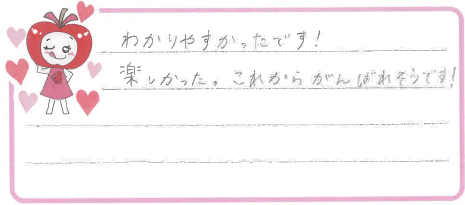 わかりやすかったです!
楽しかった。これからがんばれそうです!